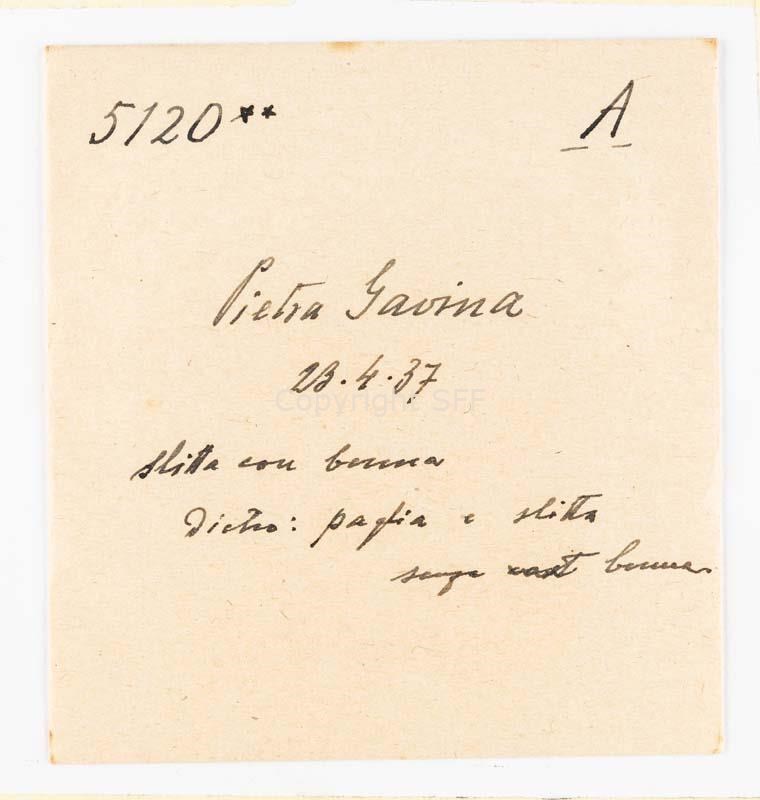 5120** A
Pietra Gavina
23.4.37
Copyright SFF
slitta con benna
Dietro: paglia e slitta
senza benna